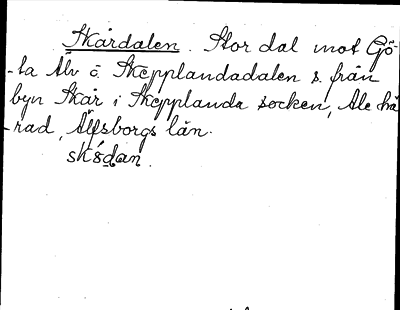 Skårdalen. Stor dal mot Gö-
-ta Älv o. Skepplandadalen s. från
byn Skår i Skepplanda socken, Ale hä
-rad, Älfsborgs län.
skɷ́dan.